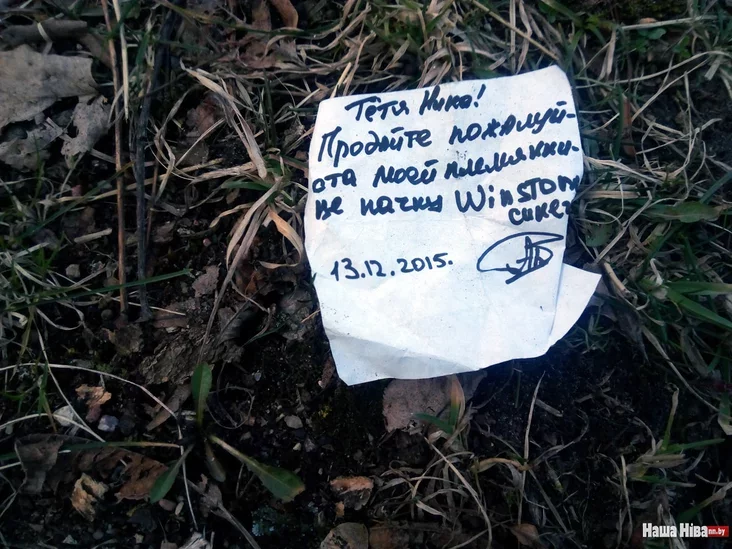 Тётя Нина!
Продайте пожалуй-
ста моей племянни-
це пачку Winston
синег
13.12.2015.
Наша Ніва nn.by